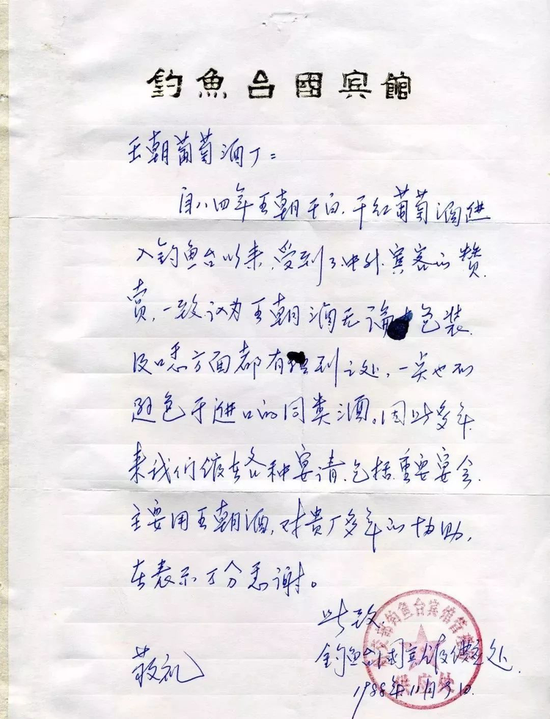 釣魚台國宾館
王朝葡萄酒厂：
自八四年王朝干白、干红葡萄酒进
入钓鱼台以来，受到了中外宾客的赞
赏，一致认为王朝酒无论 包装
及口感方面都有 到之处，一点也不
逊色于进口的同类酒。因此多年
来我们馆在各种宴请，包括重要宴会
主要用王朝酒，对贵厂多年的协助，
在表示万分感谢。
此致
敬礼
钓鱼台国宾馆 处
1988年11月 10
钓鱼台宾馆
供应处